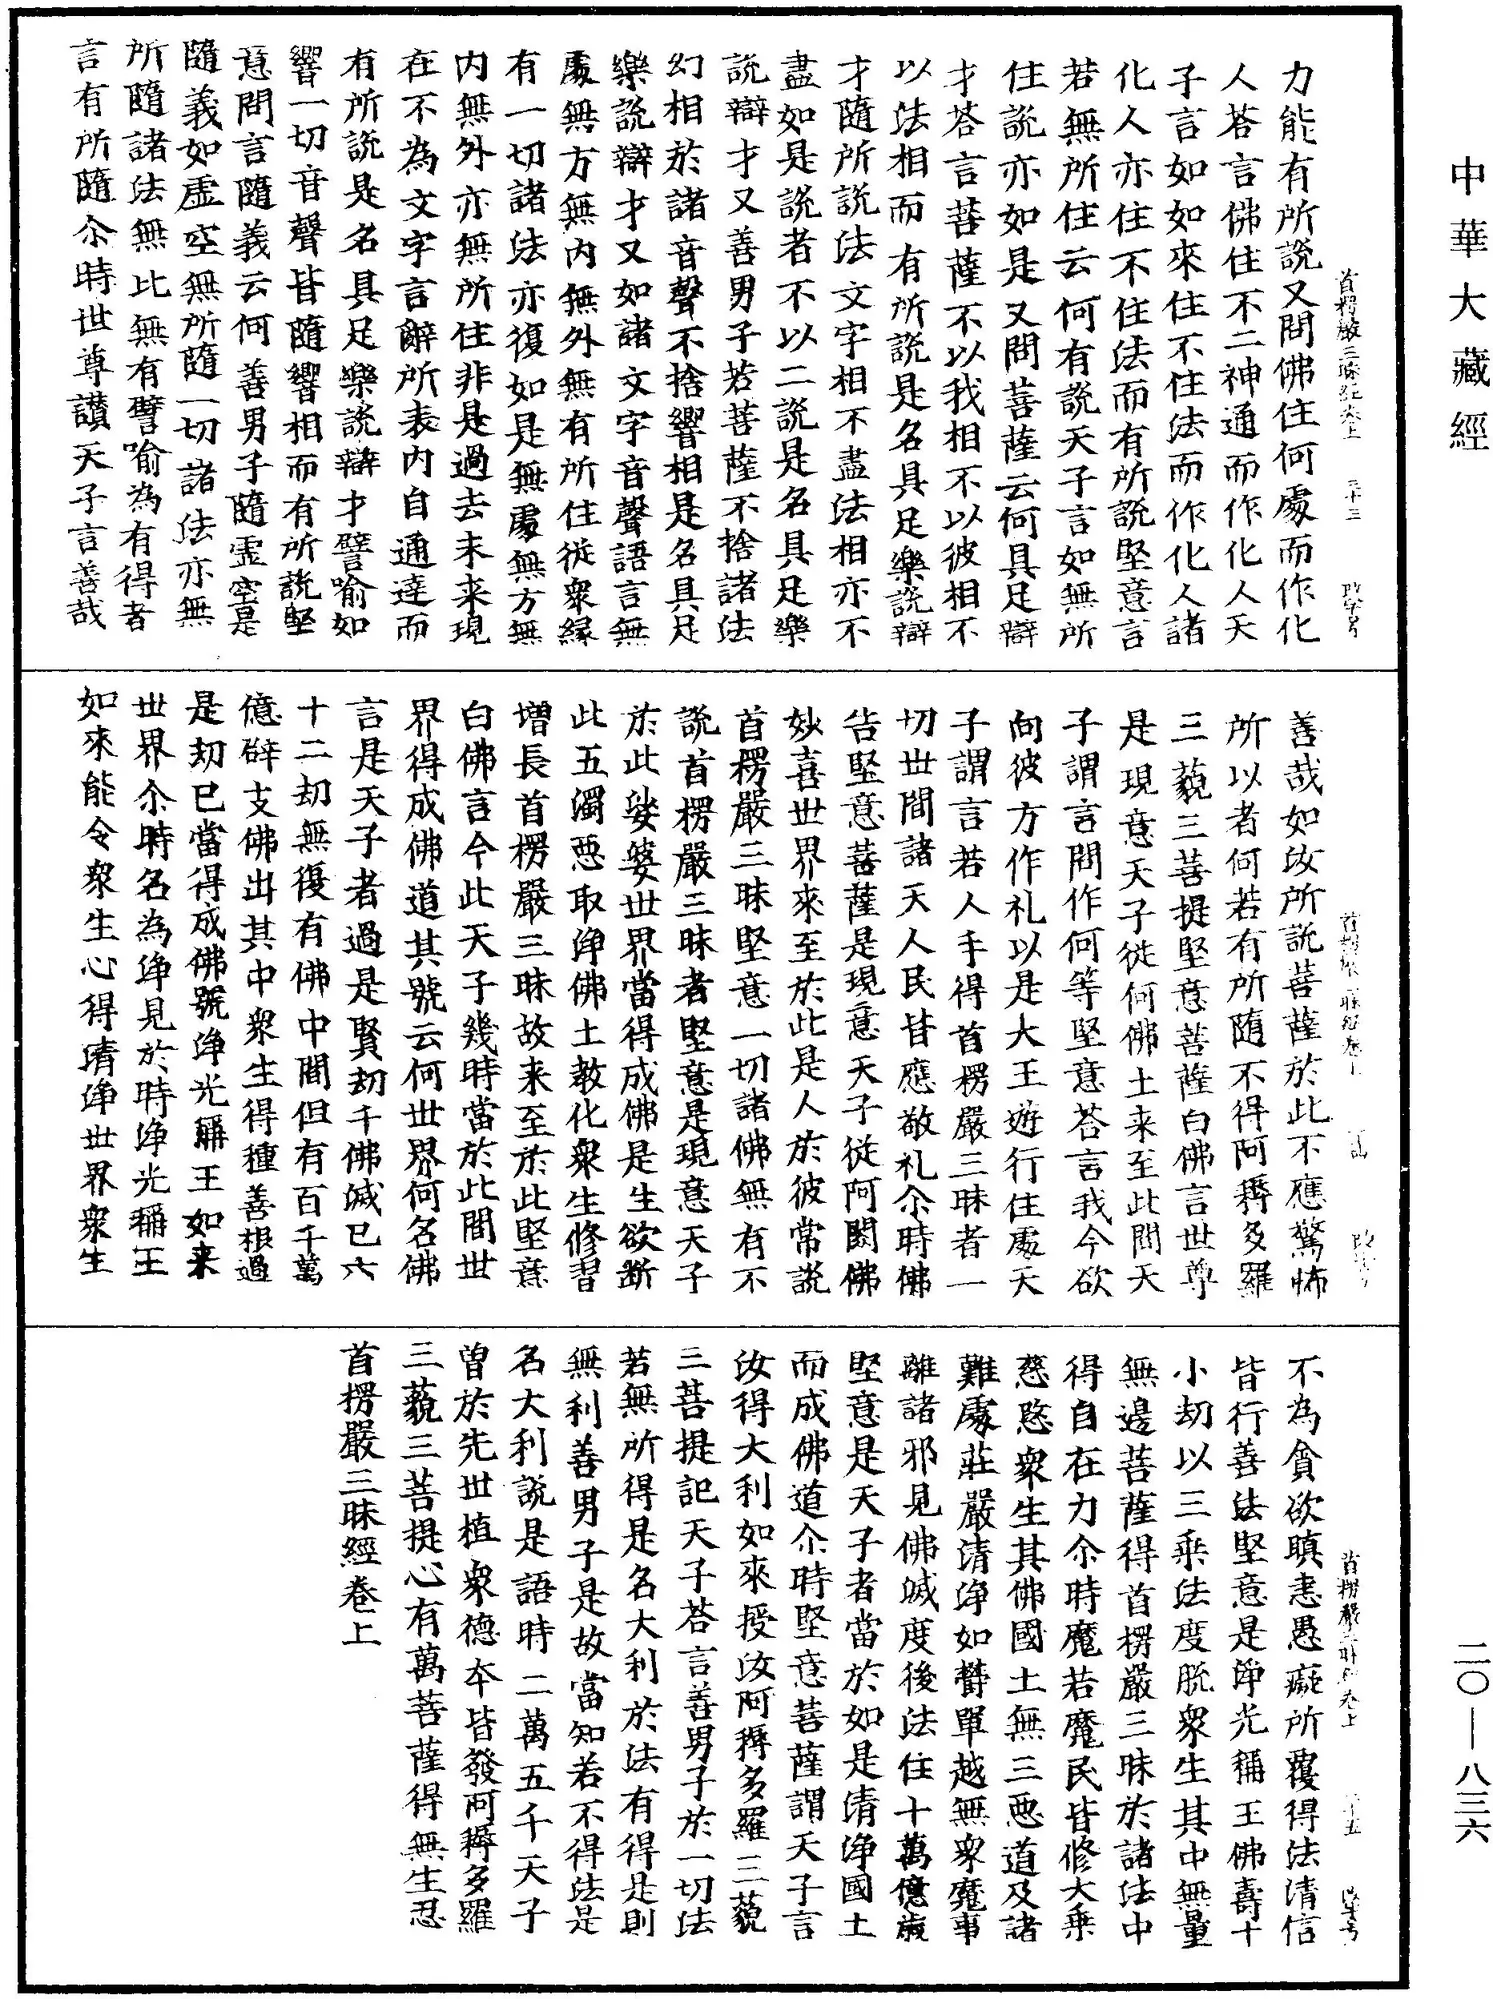 中華大藏經
二〇—八三六
首楞嚴三昧經卷上
力能有所說又問佛住何處而作化
人荅言佛住不二神通而作化人天
子言如如來住不住法而作化人諸
化人亦住不住法而有所說堅意言
若無所住云何有說天子言如無所
住說亦如是又問菩薩云何具足辯
才荅言菩薩不以我相不以彼相不
以法相而有所說是名具足樂說辯
才隨所說法文字相不盡法相亦不
盡如是說者不以二說是名具足樂
說辯才又善男子若菩薩不捨諸法
幻相於諸音聲不捨響相是名具足
樂說辯才又如諸文字音聲語言無
處無方無內無外無有所住從衆緣
有一切諸法亦復如是無處無方無
內無外亦無所住非是過去未來現
在不為文字言辭所表內自通達而
有所說是名具足樂說辯才譬喻如
響一切音聲皆隨響相而有所說堅
意問言隨義云何善男子隨虛空是
隨義如虛空無所隨一切諸法亦無
所隨諸法無比無有譬喻為有得者
言有所隨尒時世尊讃天子言善哉
善哉如汝所說菩薩於此不應驚怖
所以者何若有所隨不得阿耨多羅
三藐三菩提堅意菩薩白佛言世尊
是現意天子從何佛土来至此間天
子謂言問作何等堅意荅言我今欲
向彼方作礼以是大王遊行住處天
子謂言若人手得首楞嚴三昧者一
切世間諸天人民皆應敬礼尒時佛
告堅意菩薩是現意天子從阿閦佛
妙喜世界來至於此是人於彼常說
首楞嚴三昧堅意一切諸佛無有不
說首楞嚴三昧者堅意是現意天子
於此娑婆世界當得成佛是生欲斷
此五濁惡取淨佛土教化衆生修習
增長首楞嚴三昧故来至於此堅意
白佛言今此天子幾時當於此間世
界得成佛道其號云何世界何名佛
言是天子者過是賢劫千佛滅已六
十二劫無復有佛中間但有百千萬
億辟支佛出其中衆生得種善根過
是劫已當得成佛號淨光稱王如来
世界尒時名為淨見於時淨光稱王
如來能令衆生心得清淨世界衆生
不為貪欲瞋恚愚癡所覆得法清信
皆行善法堅意是淨光稱王佛壽十
小劫以三乘法度脫衆生其中無量
無邊菩薩得首楞嚴三昧於諸法中
得自在力尒時魔若魔民皆修大乘
慈愍衆生其佛國土無三惡道及諸
難處莊嚴清淨如欝單越無衆魔事
離諸邪見佛滅度後法住十萬億歲
堅意是天子者當於如是清淨國土
而成佛道尒時堅意菩薩謂天子言
汝得大利如來授汝阿耨多羅三藐
三菩提記天子荅言善男子於一切法
若無所得是名大利於法有得是則
無利善男子是故當知若不得法是
名大利說是語時二萬五千天子
曾於先世植衆德本皆發阿耨多羅
三藐三菩提心有萬菩薩得無生忍
首楞嚴三昧經卷上